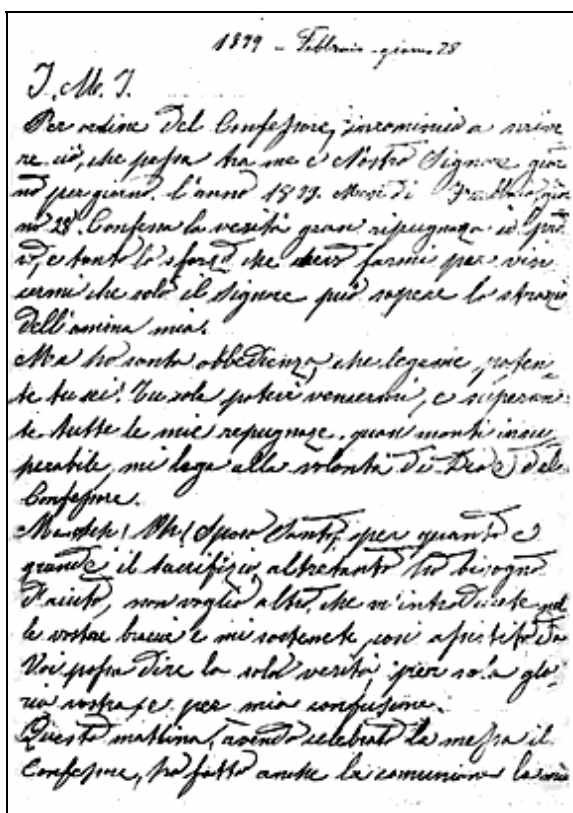 1899 - Febbraio - giorno 28
J. M. J.
Per ordine del Confessore, incomincio a scrive
re ciò, che passa tra me e Nostro Signore gior
no per giorno. l'anno 1899. Mese di Febbraio gior
no 28. Confesso la verità gran ripugnaza io pro
vo, e tanto lo sforzo che devo farmi per vin
cermi che solo il Signore può sapere lo strazio
dell'amina mia.
Ma ho santa obbedienza, che legame poten
te tu sei! Tu sola potevi vencermi, e superan
te tutte le mie repugnaze, quasi monti insu
perabile, mi lega alla volontà di Dio e del
Confessore.
Ma deh! Oh! Sposo Santo, per quanto è
grande il sacrifizio, altretanto ho bisogno
d'aiuto, non voglio altro, che m'introducete nel
le vostre braccia e mi sostenete, così assistito da
Voi possa dire la sola verità, per sola glo
ria vostra, e per mia confusione.
Questa mattina, avendo celebrato la messa il
Confessore, ho fatto anche la comunione la mia